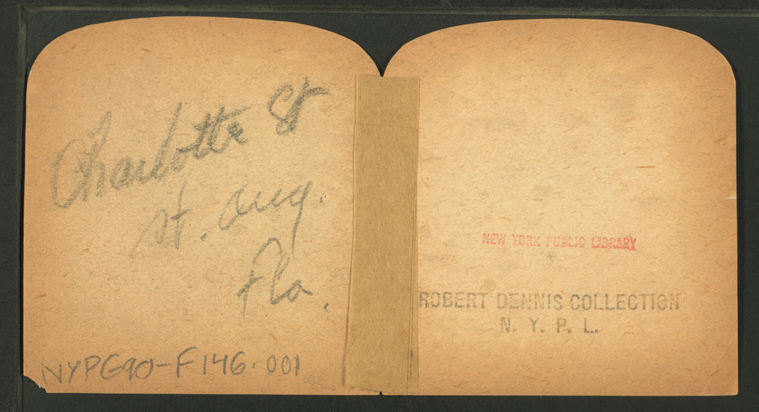 Charlotte St
St. Aug.
Fla.
NYPG90-F146.001
NEW YORK PUBLIC LIBRARY
ROBERT DENNIS COLLECTION
N. Y. P. L.